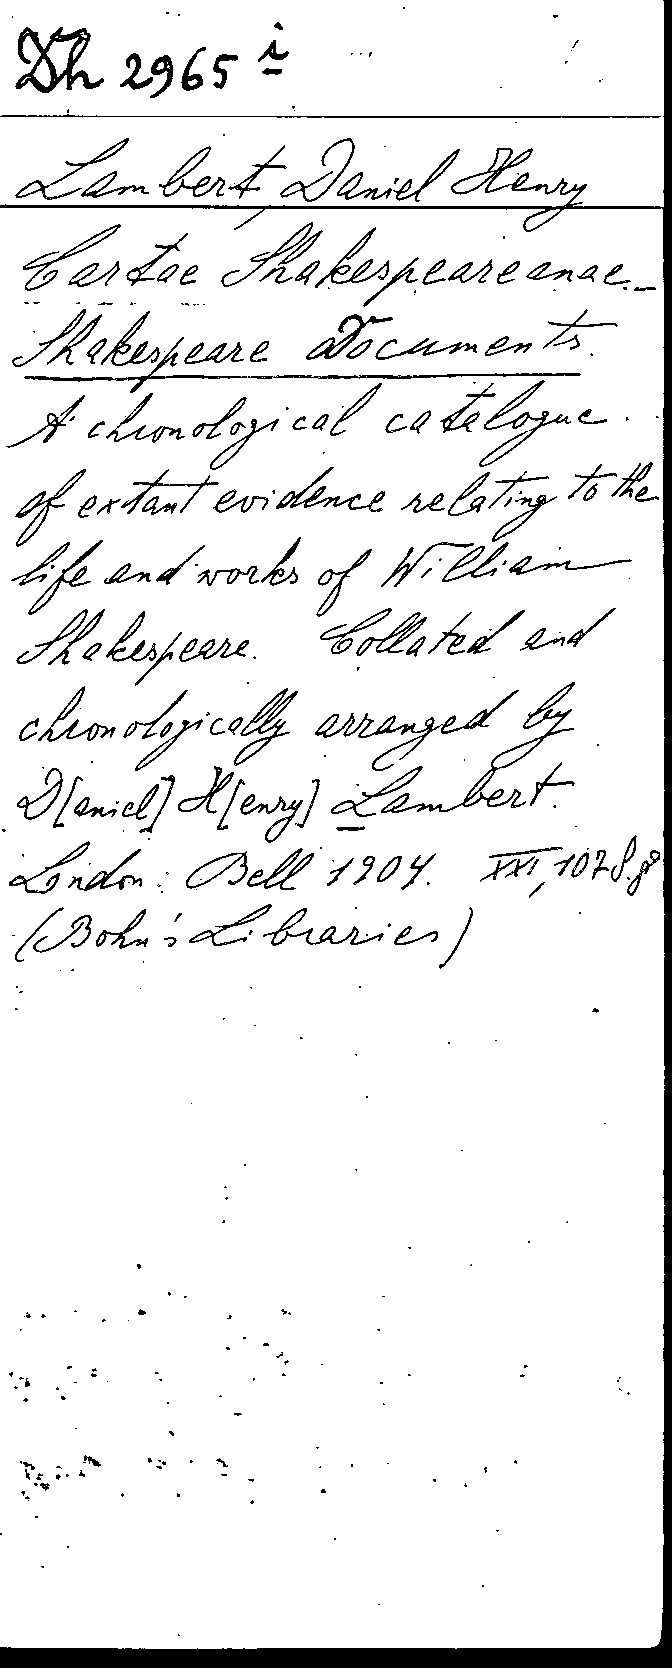 Dh 2965 i
Lambert, Daniel Henry
Cartae Shakespeareanae._
Shakespeare Documents.
A chronological catalogue
of extant evidence relating to the
life and works of William
Shakespeare. Collated and
chronologically arranged by
D[aniel] H[enry] Lambert.
London: Bell 1904. XXI, 107 S. 8°
(Bohn's Libraries)